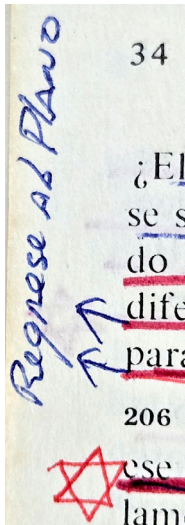 Regrese al Plano
34
¿El
se s
do
dife
para
206
ese
lame